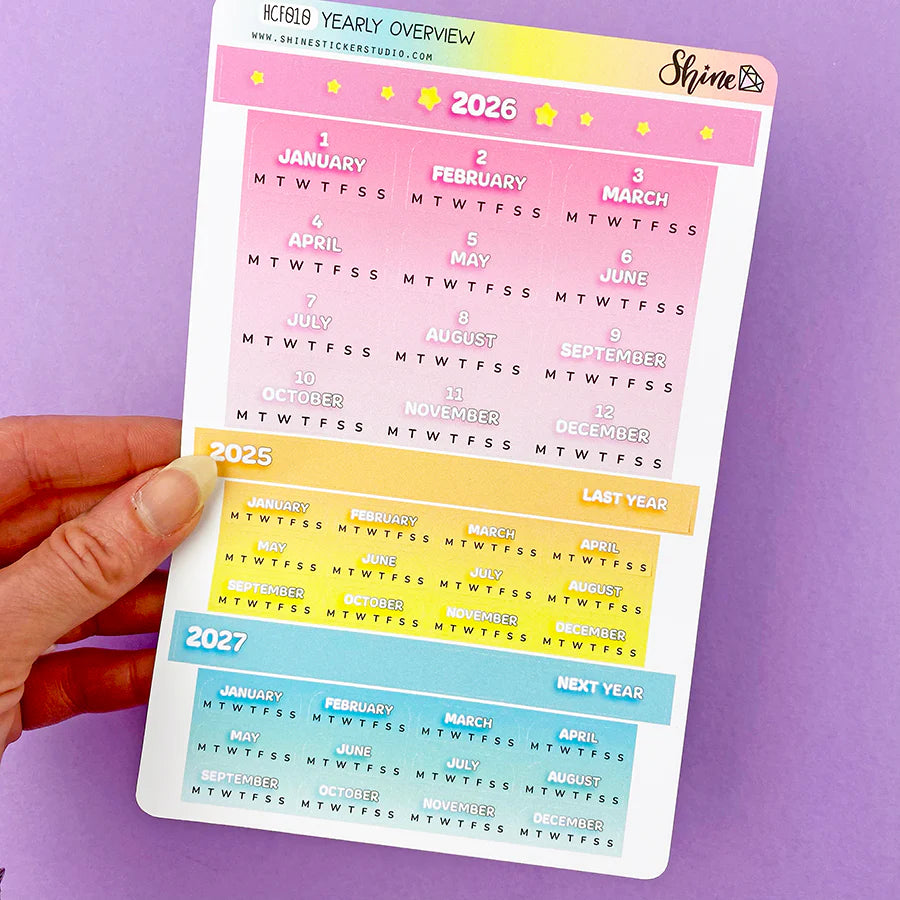 HCF010 YEARLY OVERVIEW
WWW.SHINESTICKERSTUDIO.COM
Shine
2026
1 2 3
JANUARY FEBRUARY MARCH
M T W T F S S M T W T F S S M T W T F S S
4 5 6
APRIL MAY JUNE
M T W T F S S M T W T F S S M T W T F S S
7 8 9
JULY AUGUST SEPTEMBER
M T W T F S S M T W T F S S M T W T F S S
10 11 12
OCTOBER NOVEMBER DECEMBER
M T W T F S S M T W T F S S M T W T F S S
2025 LAST YEAR
JANUARY FEBRUARY MARCH APRIL
M T W T F S S M T W T F S S M T W T F S S M T W T F S S
MAY JUNE JULY AUGUST
M T W T F S S M T W T F S S M T W T F S S M T W T F S S
SEPTEMBER OCTOBER NOVEMBER DECEMBER
M T W T F S S M T W T F S S M T W T F S S M T W T F S S
2027 NEXT YEAR
JANUARY FEBRUARY MARCH APRIL
M T W T F S S M T W T F S S M T W T F S S M T W T F S S
MAY JUNE JULY AUGUST
M T W T F S S M T W T F S S M T W T F S S M T W T F S S
SEPTEMBER OCTOBER NOVEMBER DECEMBER
M T W T F S S M T W T F S S M T W T F S S M T W T F S S